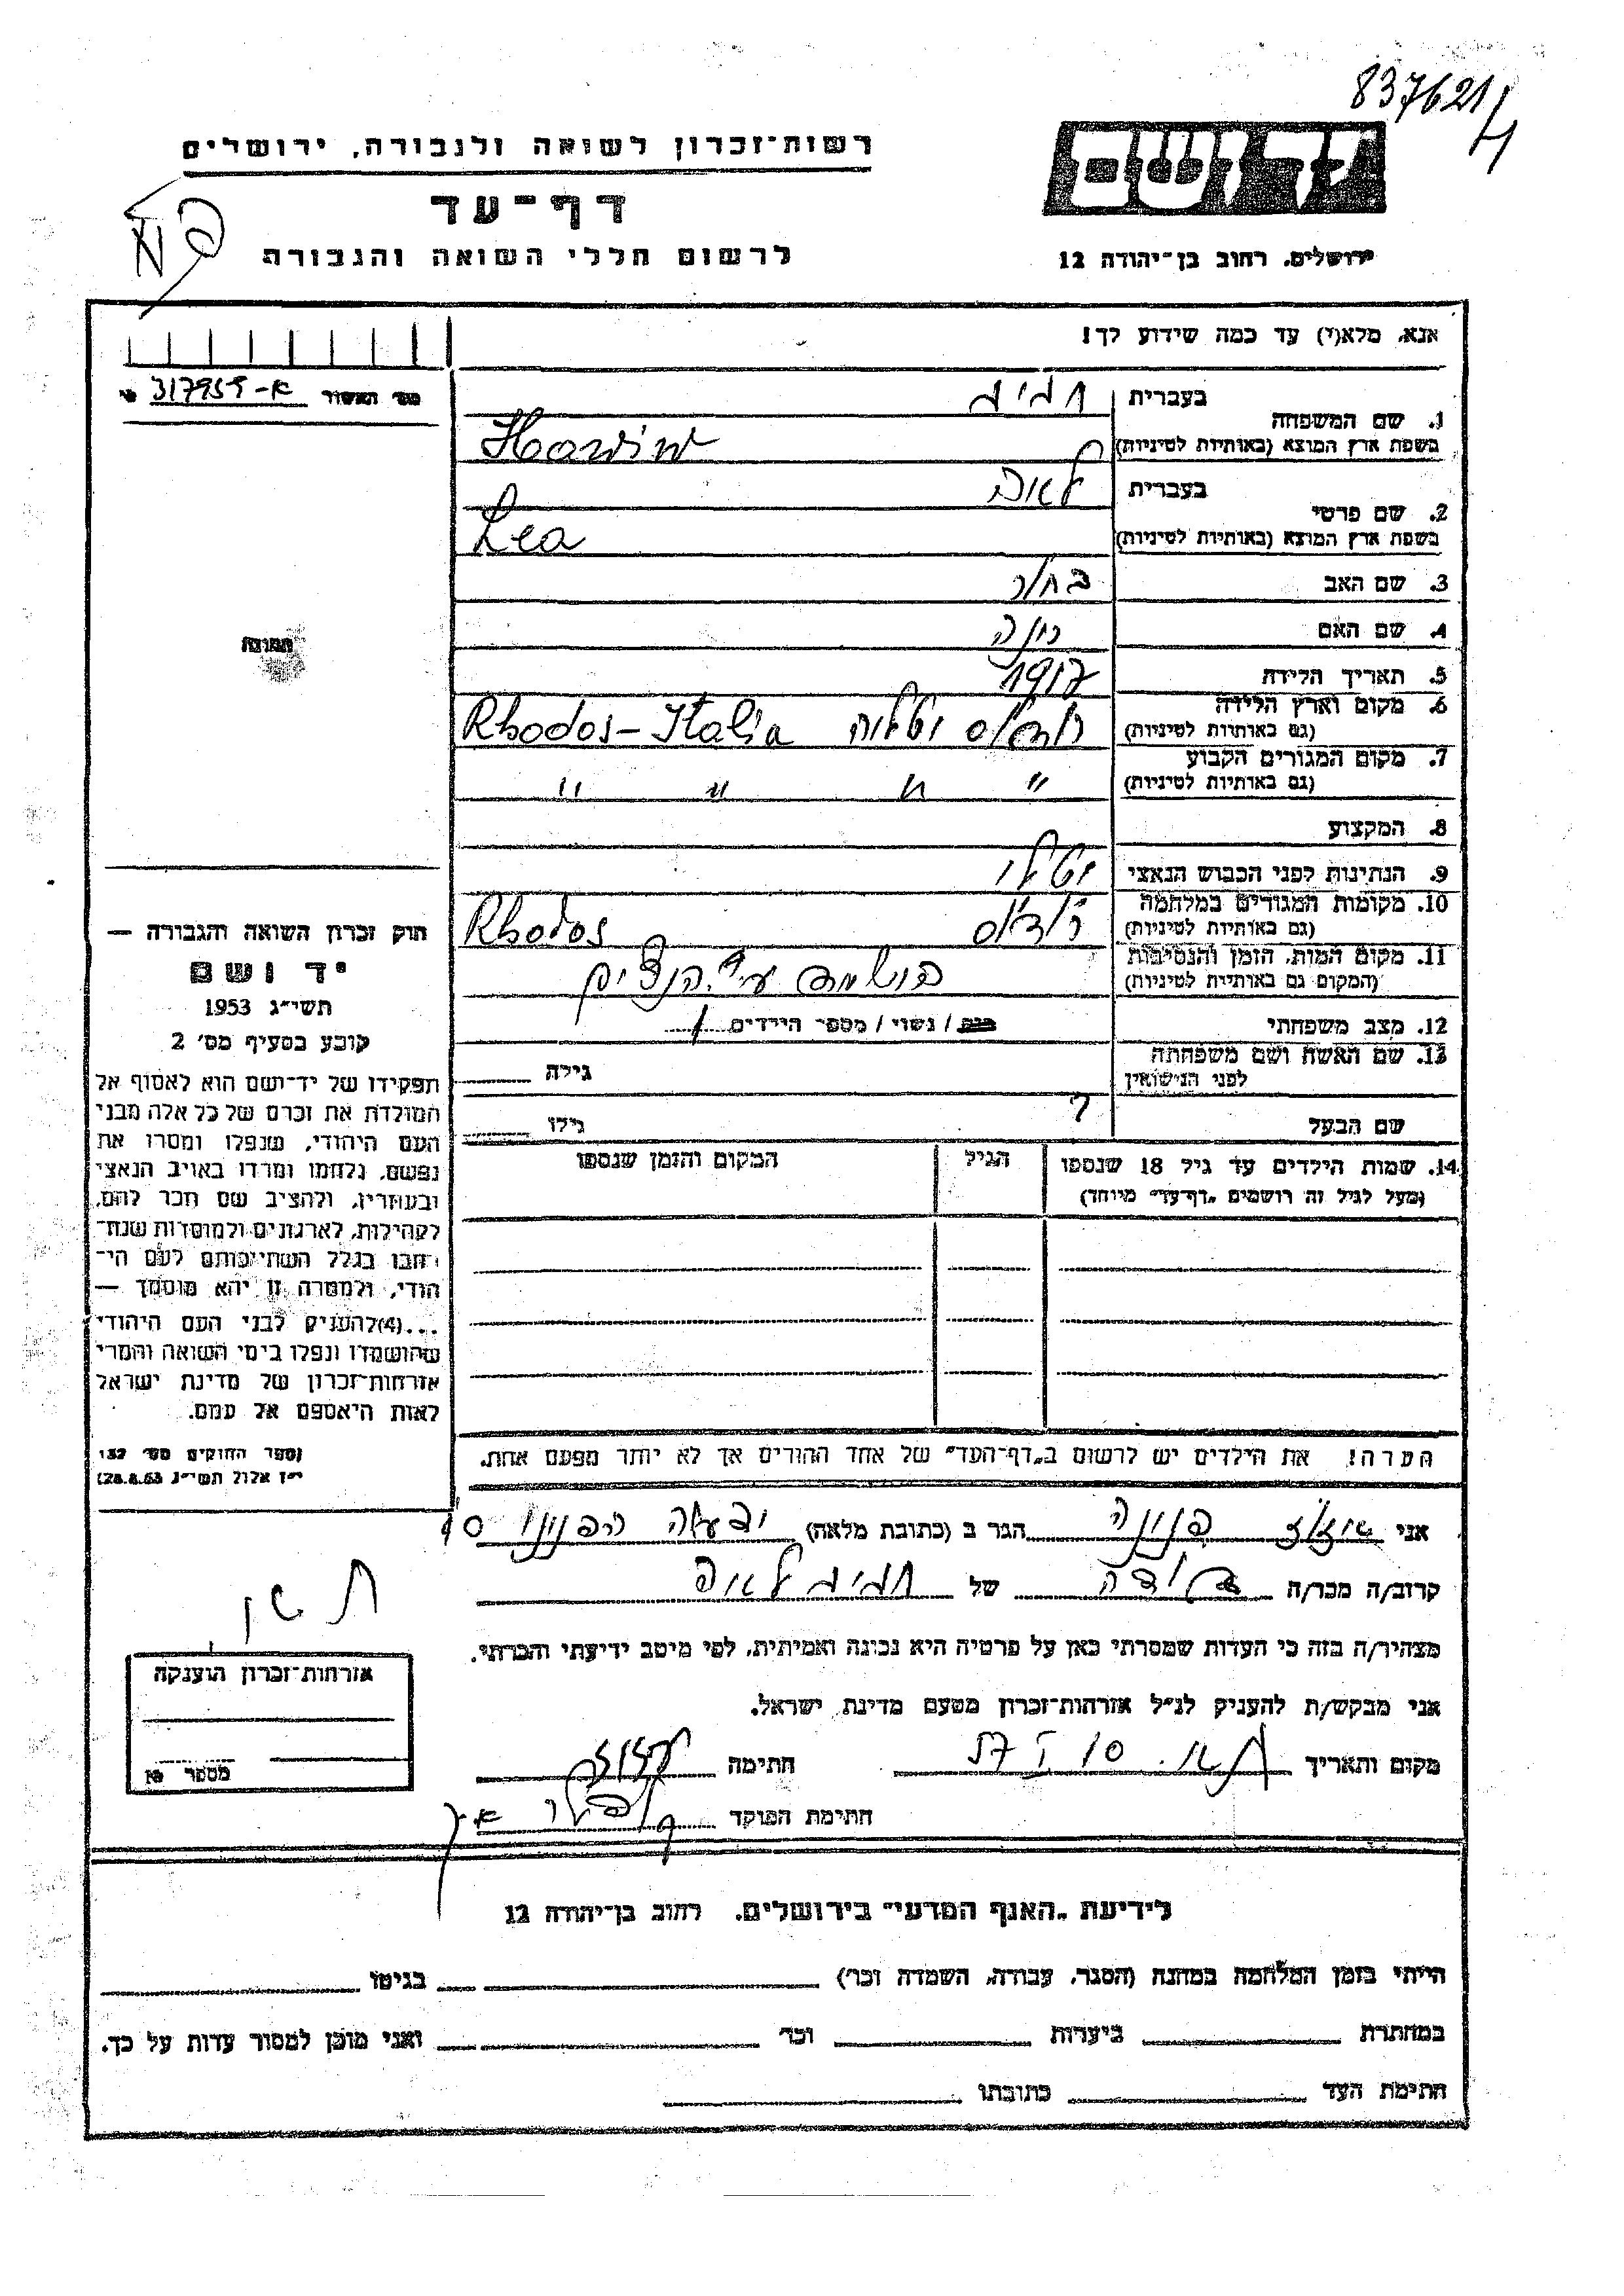 837621/4
רשות-זכרון לשואה ולגבורה, ירושלים
דף-עד
לרשום חללי השואה והגבורה
יד ושם
ירושלים, רחוב בן-יהודה 12
אנא, מלא(י) עד כמה שידוע לך!
מס' האשור א-317959
1. שם המשפחה
בעברית
בשפת ארץ המוצא (באותיות לטיניות)
2. שם פרטי
בעברית לאה
בשפת ארץ המוצא (באותיות לטיניות) Lea
3. שם האב
4. שם האם
5. תאריך הלידה 1917
6. מקום וארץ הלידה (גם באותיות לטיניות) רודוס איטליה Rhodos-Italia
7. מקום המגורים הקבוע (גם באותיות לטיניות) " " " "
8. המקצוע
9. הנתינות לפני הכבוש הנאצי
10. מקומות המגורים במלחמה (גם באותיות לטיניות) רודוס Rhodos
11. מקום המות, הזמן והנסיבות (המקום גם באותיות לטיניות) הושמדה ע"י הנצים
12. מצב משפחתי רווק / נשוי / מספר הילדים 1
13. שם האשה ושם משפחתה לפני הנישואין גילה
שם הבעל ? גילו
14. שמות הילדים עד גיל 18 שנספו (מעל לגיל זה רושמים "דף-עד" מיוחד)
הגיל
המקום והזמן שנספו
הערה! את הילדים יש לרשום ב"דף-העד" של אחד ההורים אך לא יותר מפעם אחת.
תמונה
חוק זכרון השואה והגבורה —
יד ושם
תשי"ג 1953
קובע בסעיף מס' 2
תפקידו של יד-ושם הוא לאסוף אל
המולדת את זכרם של כל אלה מבני
העם היהודי, שנפלו ומסרו את
נפשם, נלחמו ומרדו באויב הנאצי
ובעוזריו, ולהציב שם וזכר להם,
לקהילות, לארגונים ולמוסדות שנח-
רבו בגלל השתייכותם לעם הי-
הודי, ולמטרה זו יהא מוסמך —
...(4)להעניק לבני העם היהודי
שהושמדו ונפלו בימי השואה והמרי
אזרחות-זכרון של מדינת ישראל
לאות היאספם אל עמם.
(ספר החוקים מס' 132
י"ז אלול תשי"ג 28.8.53)
אני הגר ב (כתובת מלאה)
קרוב/ה מכר/ה דודה של לאה
מצהיר/ה בזה כי העדות שמסרתי כאן על פרטיה היא נכונה ואמיתית, לפי מיטב ידיעתי והכרתי.
אני מבקש/ת להעניק לנ"ל אזרחות-זכרון מטעם מדינת ישראל.
מקום ותאריך חתימה
חתימת הפוקד
אזרחות-זכרון הוענקה
מספר
לידיעת "האגף המדעי" בירושלים, רחוב בן-יהודה 12
הייתי בזמן המלחמה במחנה (הסגר, עבודה, השמדה וכר') בגיטו
במחתרת ביערות וכר' ואני מוכן למסור עדות על כך.
חתימת העד כתובתו